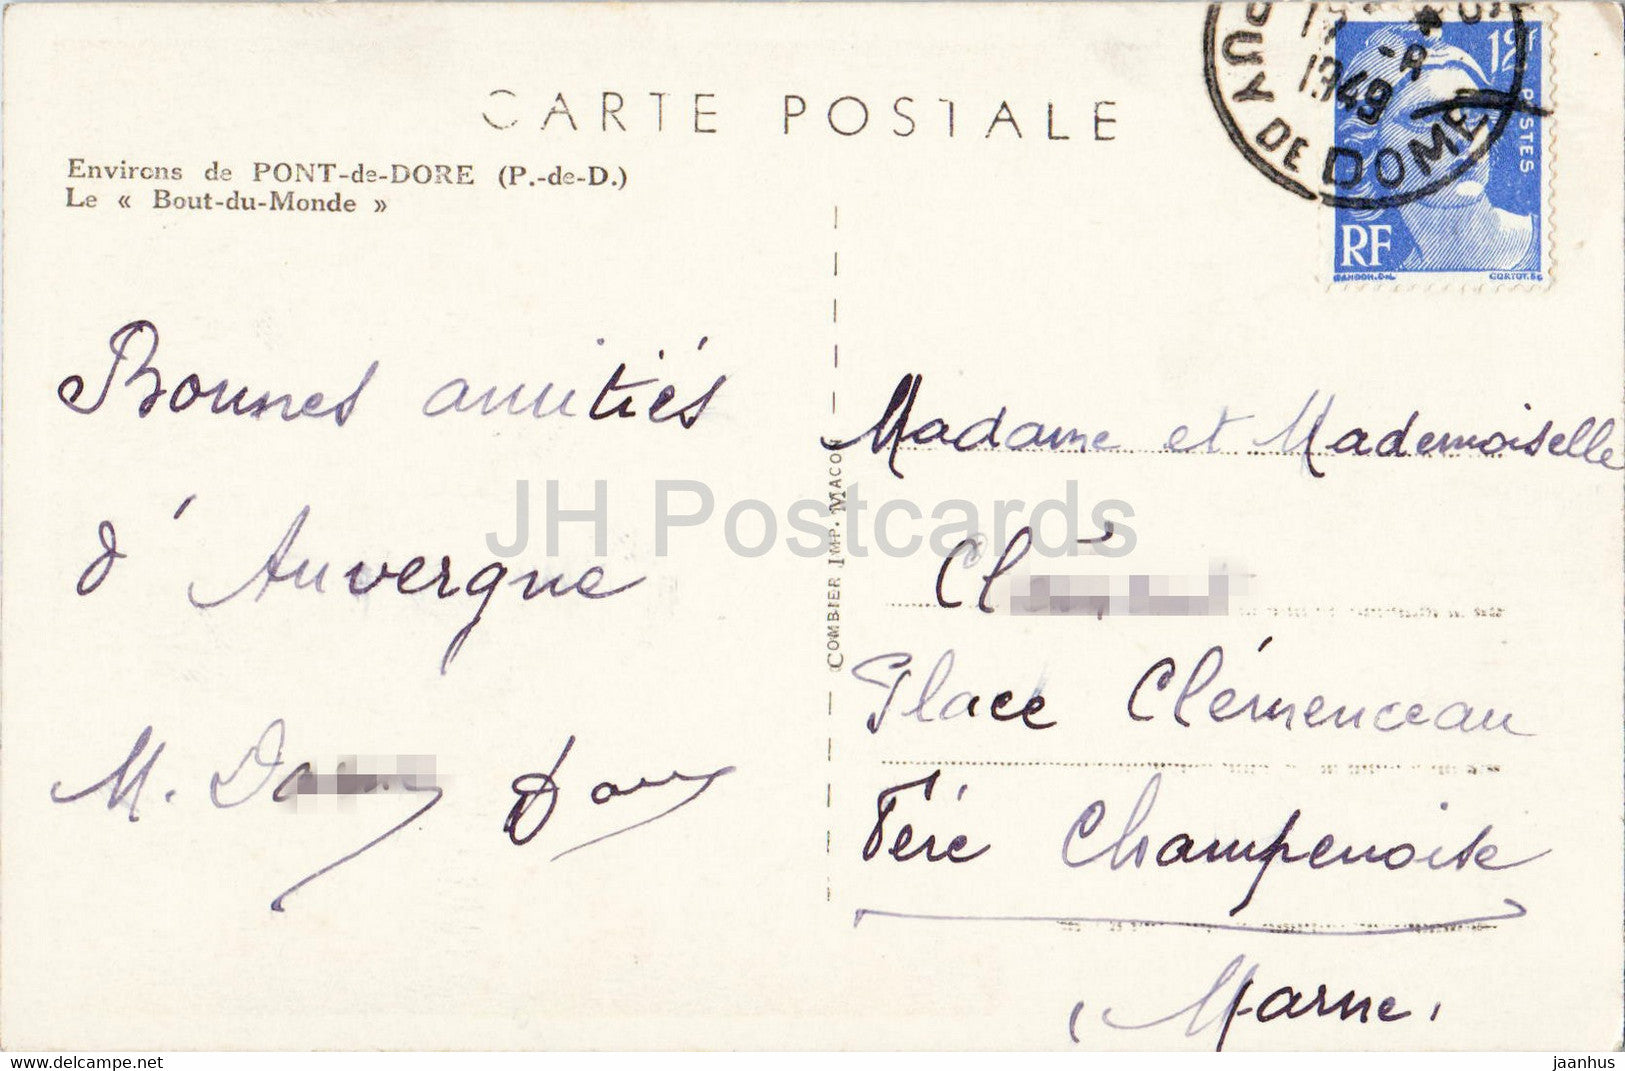 CARTE POSTALE
Environs de PONT-de-DORE (P.-de-D.)
Le « Bout-du-Monde »
PUY DE DOME
1949
12f
POSTES
RF
GANDON.DEL.
CORTOT.SC
Bonnes amitiés
d'Auvergne
M. Da
COMBIER IMP. MACON
Madame et Mademoiselle
Cl
Place Clémenceau
Fère Champenoise
(Marne)
JH Postcards
www.delcampe.net
jaanhus